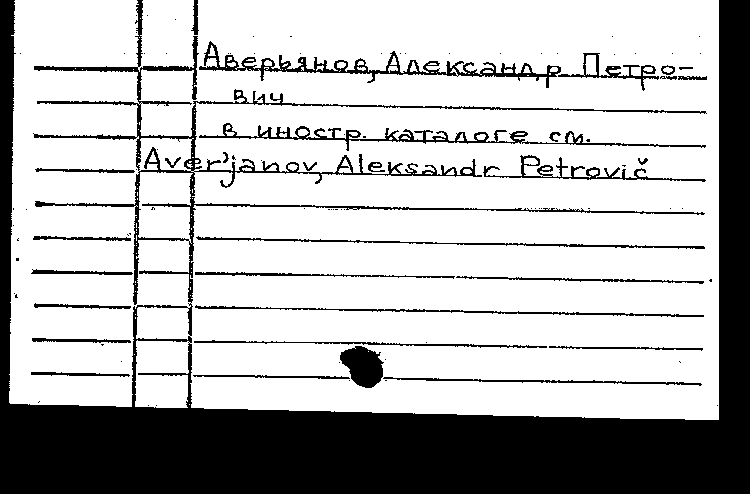 Аверьянов, Александр Петро-
вич
в иностр. каталоге см.
Aver'janov, Aleksandr Petrovič